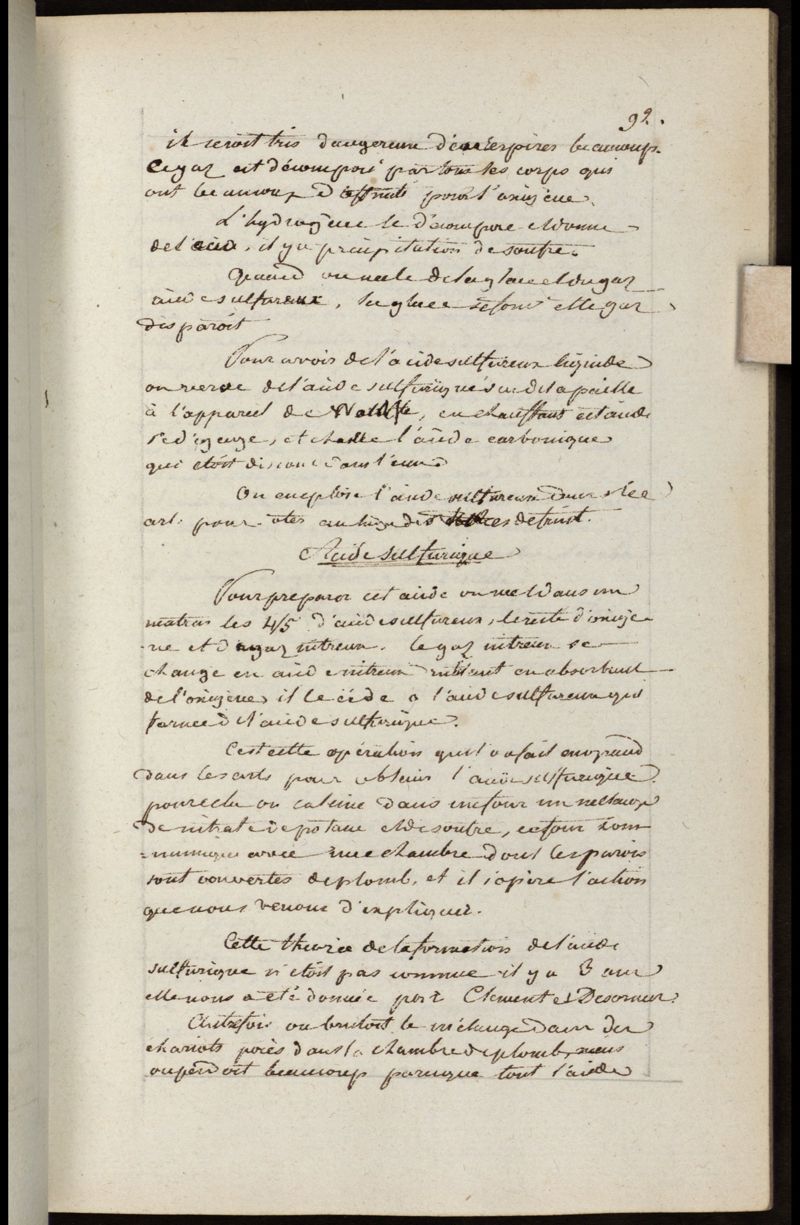 92.
il seroit tres dangereux d'en respirer beaucoup.
Ce gaz est décomposé par tous les corps qui
ont beaucoup d'affinité pour l'oxigène.
L'hydrogène le décompose et donne
de l'eau, il y a précipitation de soufre.
Quand on mele de la glace et du gaz
acide sulfureux, la glace se fond et le gaz
disparoit
Pour avoir de l'acide sulfureux liquide
on verse de l'acide sulfurique sur de la paille
à l'appareil de Wolf, en chauffant cet acide
se dégage, et chasse l'acide carbonique
qui étoit dissout dans l'eau.
On emploie l'acide sulfureux dans les
art. pour oter au linge des taches de fruit.
Acide sulfurique
Pour preparer cet acide on met dans un
matras les 4/5 d'acide sulfureux, le reste d'oxigè-
-ne et du gaz nitreux. le gaz nitreux se
change en acide nitreux en absorbant
de l'oxigène, il le cède a l'acide sulfureux qui
forme de l'acide sulfurique.
C'est cette opération que l'on fait en grand
dans les arts pour obtenir l'acide sulfurique
pour cela on calcine dans un four un melange
de nitrate de potasse et de soufre, ce four com-
=munique avec une chambre dont les parois
sont couvertes de plomb, et il s'opère l'action
que nous venons d'expliquer.
Cette théorie de la formation de l'acide
sulfurique n'étoit pas connue il y a 3 ans
elle nous a été donnée par Clement et Desormes
Autrefois on bruloit le mélange dans des
chariots posés dans la chambre de plomb, mais
on perdoit beaucoup parceque tout l'acide